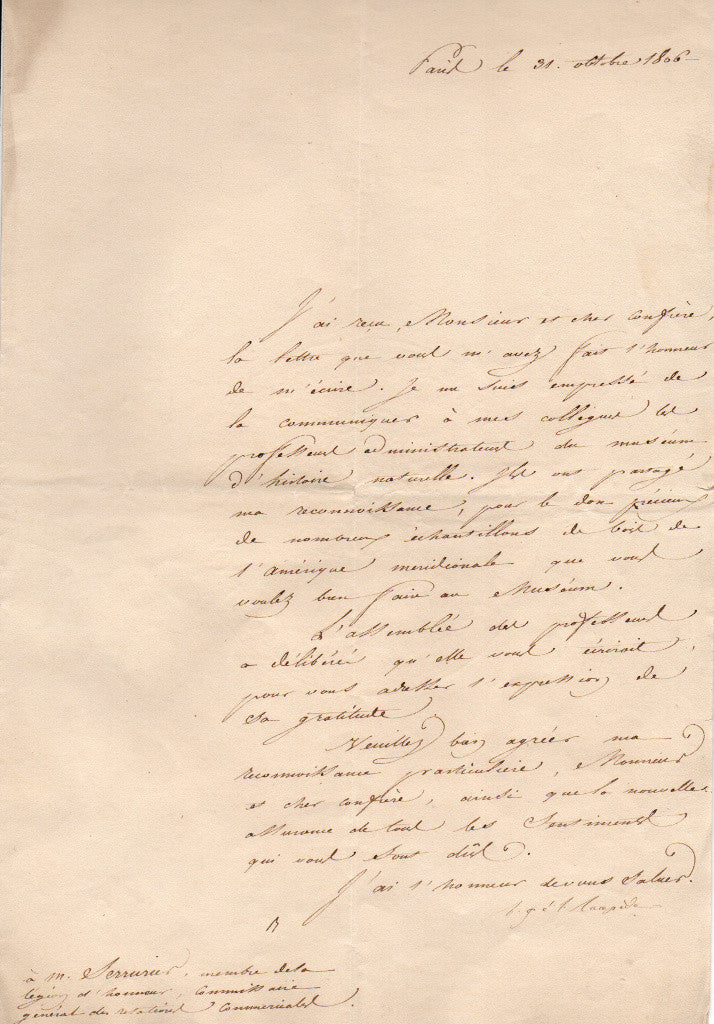 Paris le 31. octobre 1806
J'ai reçu, Monsieur et cher confrère,
la lettre que vous m'avez fait l'honneur
de m'écrire. Je me suis empressé de
la communiquer à mes collègues les
professeurs administrateurs du muséum
d'histoire naturelle. Ils ont partagé
ma reconnoissance, pour le don précieux
de nombreux échantillons de bois de
l'amérique meridionale que vous
voulez bien faire au Muséum.
L'assemblée des professeurs
a délibéré qu'elle vous écriroit,
pour vous adresser l'expression de
sa gratitude
Veuillez bien agréer ma
reconnoissance particulière, Monsieur
et cher confrère, ainsi que la nouvelle
assurance de tous les sentiments
qui vous sont dûs.
J'ai l'honneur de vous saluer.
à m. Serrurier, membre de la
légion d'honneur, commissaire
général des relations commerciales.